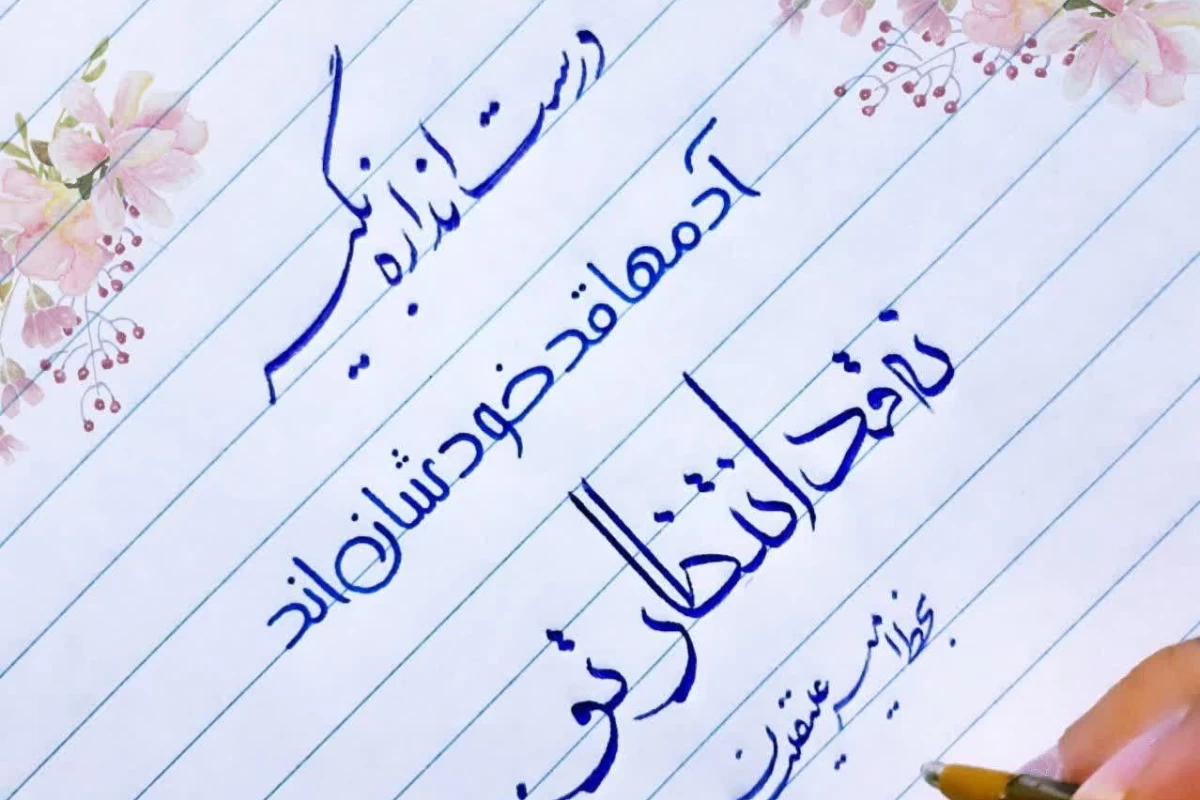 درست اندازه بگیر
آدمها قد خودشان اند
نه قد انتظار تو
بخط امیر